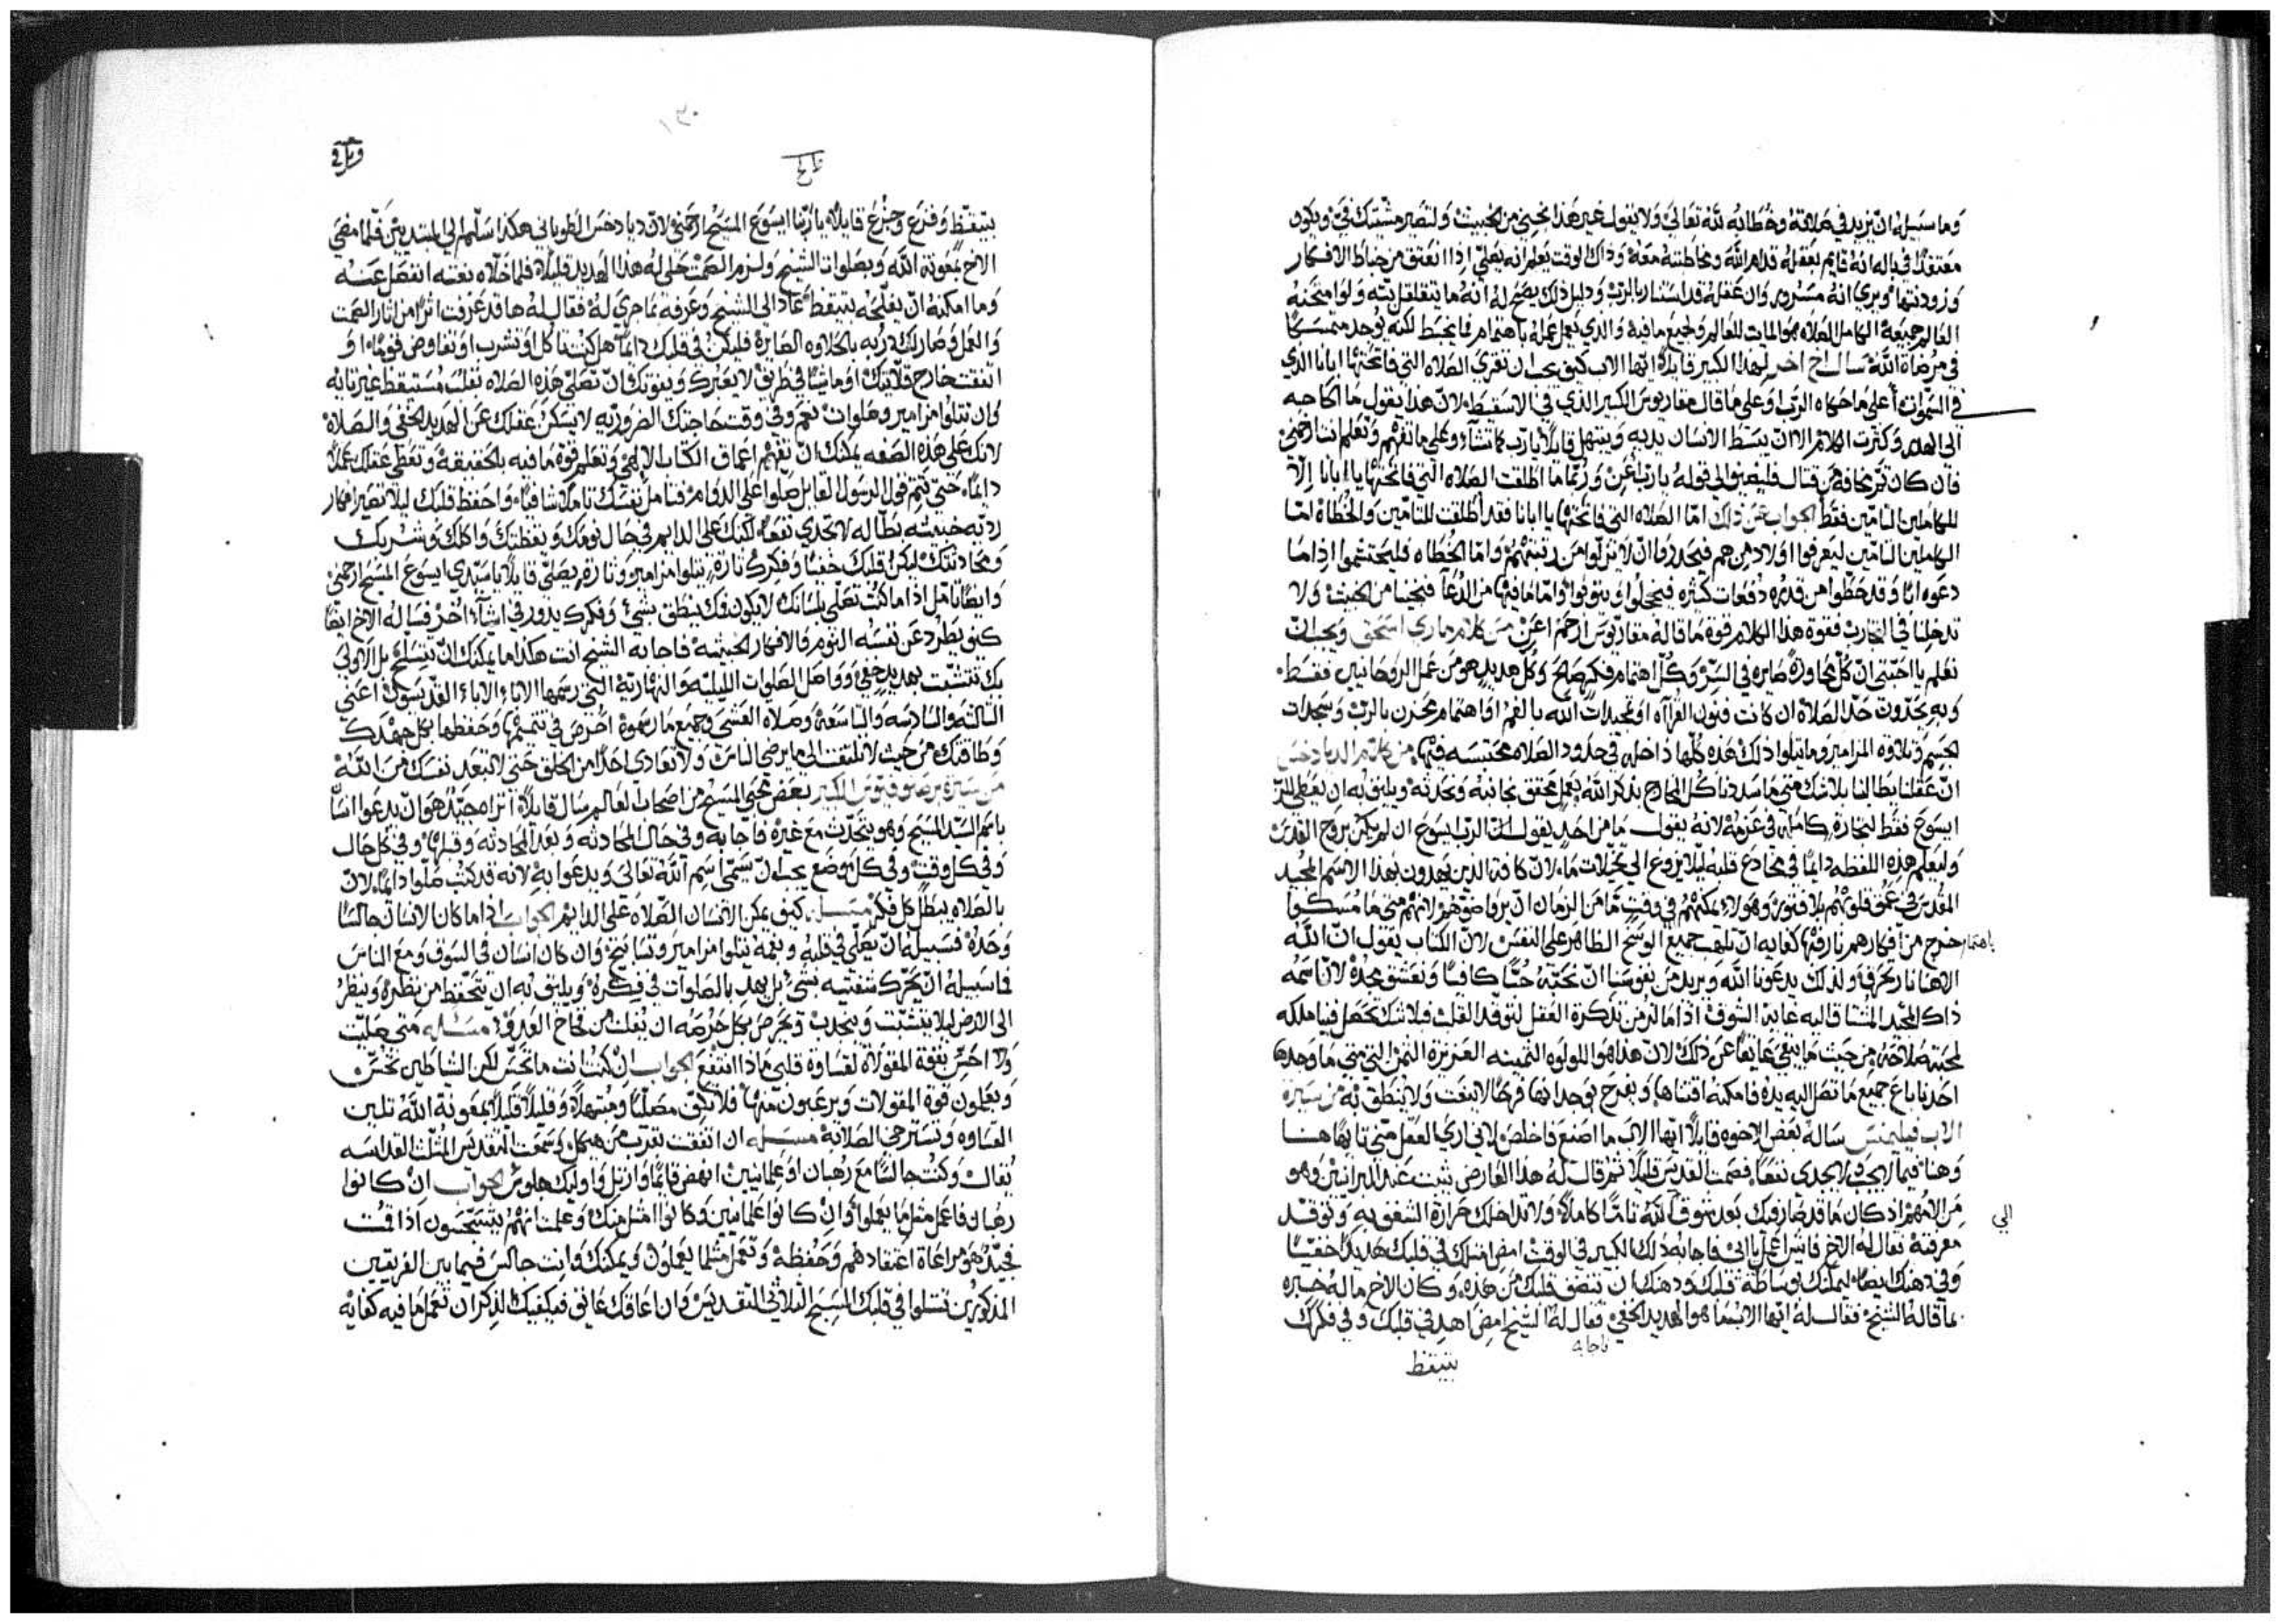 وما سبيله ان يزيد في صلاته وخطابه لله تعالى ولا يقول غير هذا نجيني من الخبيث ولتصير مشيتك في ويكون
معتقدًا في باله انه قايم بعقله قدام الله ومخاطبته معه وذاك الوقت يعلم انه يصلي اذا انعتق من خباط الافكار
ويري انه مسرور وان عقله قد استنار بالرب ودليل ذلك يصح له انه ما يتقلقل بته ولو امتحنه
العالم جميعه الكامل الصلاه هو المايت للعالم ولجميع ما فيه والذي يعمل عمله باهتمام فما يخبط لكنه يوجد متمسكًا
في مرضاة الله سال اخ اخر لهذا الكبير قايلاً ايها الاب كيف يجب ان تقري الصلاه التي فاتحتها ابانا الذي
في السموات أعلى ما حكاه الرب او على ما قال مقاريوس الكبير الذي في الاسقيط لان هذا يقول ما بنا حاجه
الى الهدر وكثرت الكلام الا ان يبسط الانسان يديه ويبتهل قايلاً يارب كما تشآء وعلى ما تفهم وتعلم انت ارحمني
فان كان ثم مخافة من قتال فليضيف الى قوله يارب أعن وربما ما اطلقت الصلاه التي فاتحتها يا ابانا إلا
للكاملين التامين فقط الجواب عن ذلك امّا الصلاه التي فاتحتها يا ابانا فقد أطلقت للتامين والخطاة امّا
الكاملين التامين ليعرفوا اولاد من هم فيحدروا ان لا ينزلوا من رتبتهم وامّا الخطاه فليحتشموا اذا ما
دعوه ابًا وقد خطوا من قدره دفعات كثيره فيخجلوا ويتوبوا وامّا ما فيها من الدعآ فنجينا من الخبيث ولا
تدخلنا في التجارب فقوة هذا الكلام قوة ما قاله مقاريوس ارحم أعن من كلام ماري اسحق ويجب ان
نعلم يا احبتي ان كل محاورة صايره في السر وكل اهتمام فكر صالح وكل هديد هو من عمل الروحانيين فقط
وبه يحدون حد الصلاة ان كانت فنون القرآه او تمجيدات الله بالفم او اهتمام محزن بالرب وسجدات
الجسم وتلاوه المزامير وما يتلوا ذلك هذه كلها داخله في حدود الصلاه محتبسه فيها من كلام الديادخس
ان عقلنا يطالبنا بلا شك متي ما سددنا كل المخارج بذكر الله بعمل محقق نجابته ونحدثه ويليق به ان يعطي الرب
ايسوع فقط لتجارة كامله في عزمه لانه يقول ما من احد يقول ان الرب ايسوع ان لم يكن بروح القدس
وليعلم هذه اللفظه دايمًا في مخادع قلبه ليلا يزوغ الي تخيلات ما لان كافة الذين يهدون بهذا الاسم المجيد
المقدس في عمق قلوبهم بلا فتور وهولاء يمكنهم في وقت ما من الزمان ان يروا ضو عقولهم متي ما مسكوا
باهتمام حرج من افكارهم نار فيها كفايه ان تلهب جميع الوسخ الظاهر على النفس لان الكتاب يقول ان الله
الاهنا نار تحرق ولذلك يدعونا الله ويريد من نفوسنا ان نحبه حبًا كافيًا ونعشق مجده لان اسمه
ذاك المجيد المشتاق اليه غاية الشوق اذا ما لزمن تذكره العقل لتوقد القلب فلا شك تحصل فينا ملكه
لمحبة صلاحه من حيث ما يبقي عايقًا عن ذلك لان هذا هو اللولوه الثمينه العزيزة الثمن التي متي ما وجدها
احدنا باع جميع ما تصل اليه يده فامكنه اقتناها ويفرح بوجدانها فرحًا لا ينعت ولا ينطق به من سيرة
الاب فيليمنس ساله بعض الاخوه قايلاً ايها الاب ما اصنع فاخلص لاني اري العقل مني تايهًا هنا
وهنا فيما لا يجب ولا يجدي نفعًا فصمت القديس قليلًا ثم قال له هذا العارض يثبت عند البرانيين وهو
من الامهم اذ كان ما قد صار فيك بعد شوق الى الله تامًا كاملًا ولا تداخلك حرارة الشغف به وتوقد
الي
معرفته فقال له الاخ فايش اعمل يا ابي فاجابه ذلك الكبير في الوقت امض امتلك في قلبك هديدًا خفيًا
وفي ذهنك ايضًا ليمكنك بوساطة قلبك وذهنك ان تنضف قلبك من هذه وكان الاخ ما له خبره
بما قاله الشيخ فقال له ايها الاب ما هو الهديد الخفي فقال له الشيخ امض اهد في قلبك وفي فكرك
فاجابه
بتيقظ
١٣٠
بتيقظ وفزع وجزع قايلاً ياربنا ايسوع المسيح ارحمني لان ديادخس الطوباني هكذا سلم الى المبتديين فلما مضي
الاخ بمعونة الله وبصلوات الشيخ ولزم الصمت حلي له هذا الهديد قليلاً فلما خلاه بغته انفصل عنه
وما امكنه ان يفلحه بتيقظ عاد الى الشيخ وعرفه بما جري له فقال له ها قد عرفت اثرًا من اثار الصمت
والعمل وصار لك دربه بالحلاوه الصايرة فليكن في قلبك دايمًا هل كنت تاكل او تشرب او تفاوض قومًا او
اتفقت خارج قلايتك او ماشيًا في طريق لا يعبرك ويفوتك ان تصلي هذه الصلاه بقلب مستيقظ غير تايه
وان تتلوا مزامير وصلوات نعم وفي وقت حاجتك الضروريه لا يسكن عقلك عن الهديد الخفي والصلاة
لانك على هذه الصفه يمكنك ان تفهم اعماق الكتاب الالهي وتعلم قوة ما فيه بالحقيقه وتعطي عقلك عملاً
دايمًا حتي تتم قول الرسول القايل صلوا على الدوام فتامل نفسك تاملًا شافيًا واحفظ قلبك ليلا تصير افكار
رديه خبيثه بطاله لا تجدي نفعًا لكنك على الدايم في حال نومك ويقظتك واكلك وشربك
ومحادثتك ليكن قلبك خفيًا وفكرك تارة يتلوا مزامير وتارة يصلي قايلاً يا سيدي ايسوع المسيح ارحمني
وايضًا تامل اذا ما كنت تصلي بلسانك لا يكون فمك ينطق بشي وفكرك يدور في اشيآء اخر فساله الاخ ايضًا
كيف يطرد عن نفسه النوم والافكار الخبيثه فاجابه الشيخ انت هكذا ما يمكنك ان تنسلخ بل الاولي
بك تتشبت بهديد خفي وواصل الصلوات الليليه والنهاريه التي رسمها الاباء القديسون أعني
الثالثه والسادسه والتاسعة وصلاه العشي وجميع ما رسموه احرص في تتميمها وحفظها بكل جهدك
وطاقتك من حيث لا تلتفت الى ما يرضي الناس ولا تعادي احدًا من الخلق حتي لا تبعد نفسك من الله
بعض محبي المسيح من اصحاب العالم سال قايلاً اتراه جيد هو ان يدعوا انسان
باسم السيد المسيح وهو يتحدث مع غيره فاجابه وفي حال المحادثه وبعد المحادثه وقبلها وفي كل حال
وفي كل وقت وفي كل موضع يجب ان يسمى اسم الله تعالى ويدعوا به لانه قد كتب صلوا دايمًا لان
بالصلاه يبطل كل فكر مسله كيف يمكن الانسان الصلاة على الدايم الجواب اذا ما كان الانسان جالسًا
وحده فسبيله ان يصلي في قلبه وبفمه يتلوا مزامير وتسابيح وان كان انسان في السوق ومع الناس
فما سبيله ان يحرك شفتيه بشي بل يهد بالصلوات في فكره ويليق به ان يتحفظ من نظره وينظر
الى الارض ليلا يتشتت وينجدب ويحرص بكل حرصه ان يفلت من فخاخ العدو مسئله متي صليت
ولا احس بقوة المقولات لقساوة قلبي ماذا انتفع الجواب ان كنت انت ما تحس لكن الشياطين تحس
ويعلمون قوة المقولات ويرعبون منها فلا تكف مصليًا ومبتهلاً وقليلاً قليلاً بمعونة الله تلين
القساوه وتسترخي الصلابة مسله ان اتفقت بقرب من هيكل وسمعت التقديس المثلث القداسه
يقال وكنت جالسًا مع رهبان او علمانيين انهض قايمًا او ارتل واوليك جلوس الجواب ان كانوا
رهبان فاعمل مثل ما يعملوا وان كانوا علمانيين وكانوا امثل منك وعلمت انهم يستحسون اذا قمت
فجيد هو مراعاة اعتقادهم وحفظه وتعمل مثلما يعملون ويمكنك وانت جالس فيما بين الفريقين
المذكورين تتلوا في قلبك التسبيح الثلاثي التقديس وان اعاقك عايق فيكفيك الذكر ان تعمل ما فيه كفايه